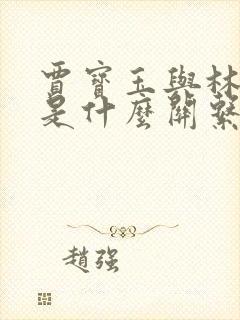 賈寶玉與林
是什麼關繫
趙强